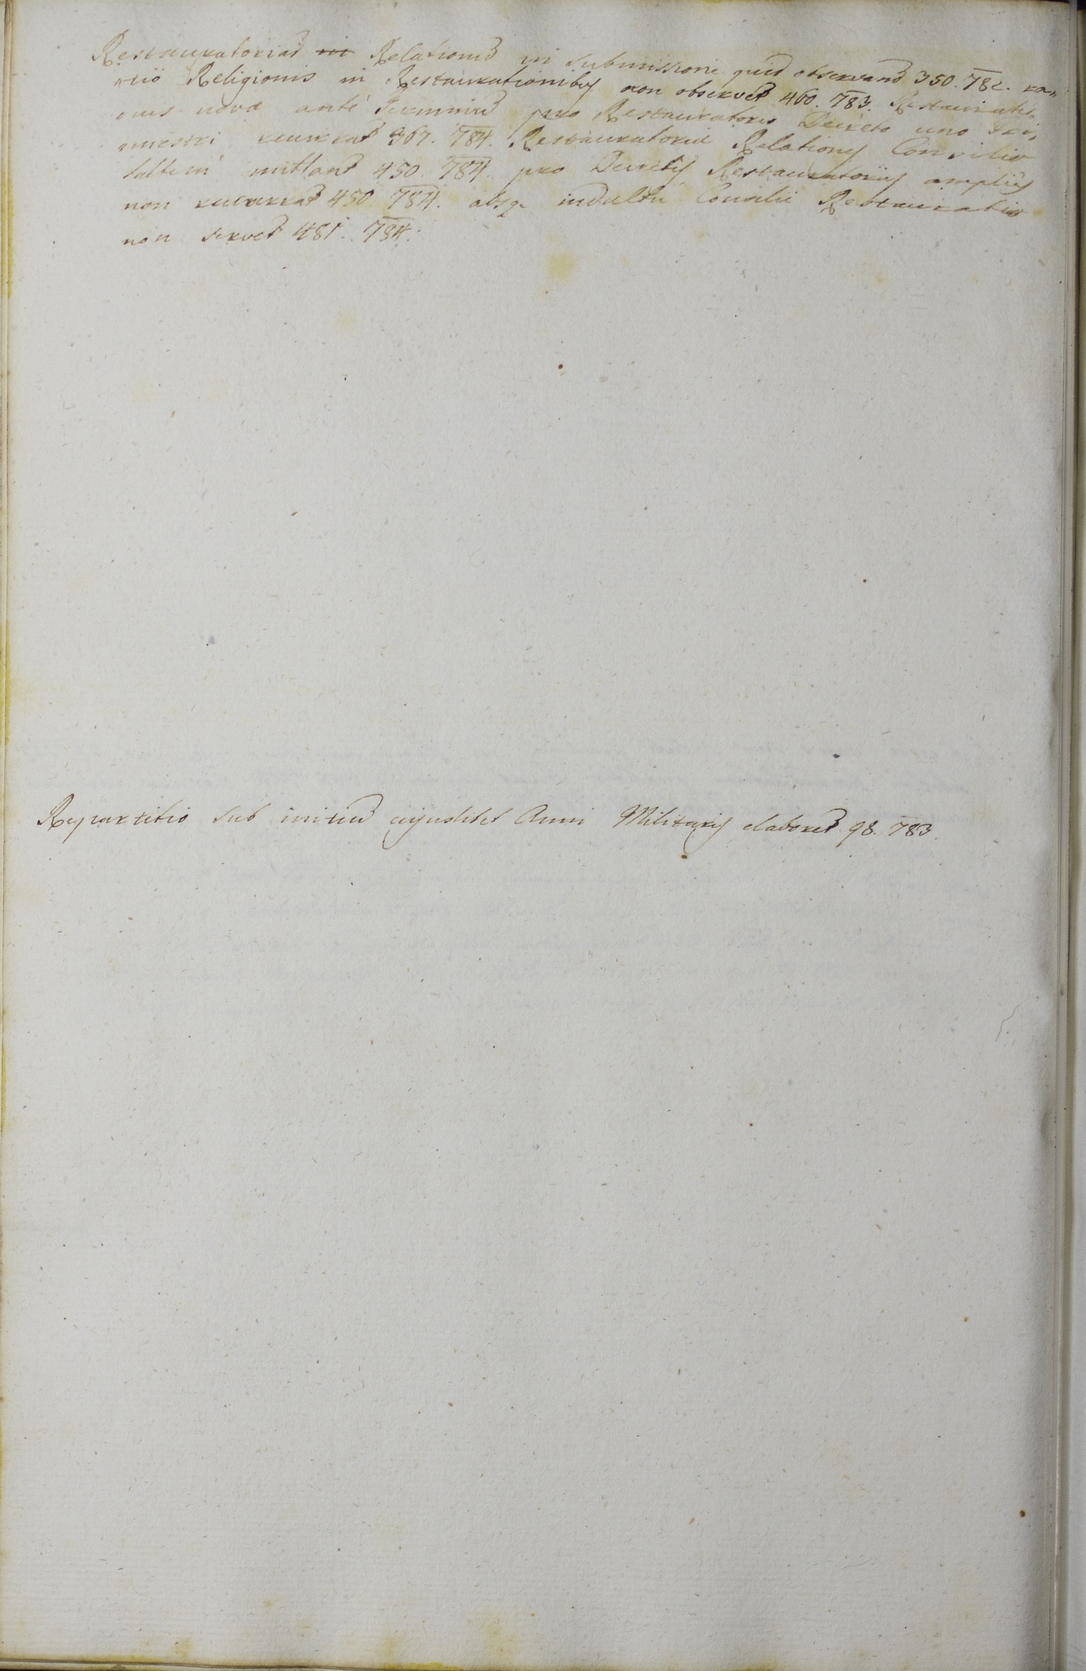 Restauratoriar̄ in Relationū in submissione quid observand 350. 782. ra„
tiō Religionis in Restaurationibȝ non observet̄ 460. 783. Restauratio„
nis novæ ante Terminū pro Restauratorio Decreto uno tri„
mestri recurrat̄ 367. 784. Restauratoriæ Relationes Consilio
saltem mittant̄ 450. 784. pro Decretis Restauratoriis amplius
non recurrat̄ 450 784. absq̄ indultu Consilii Restauratio
non servet̄ 481. 784.
Repartitio sub initiū cujuslibet Anni Militaris elaboret̄ 98. 783.